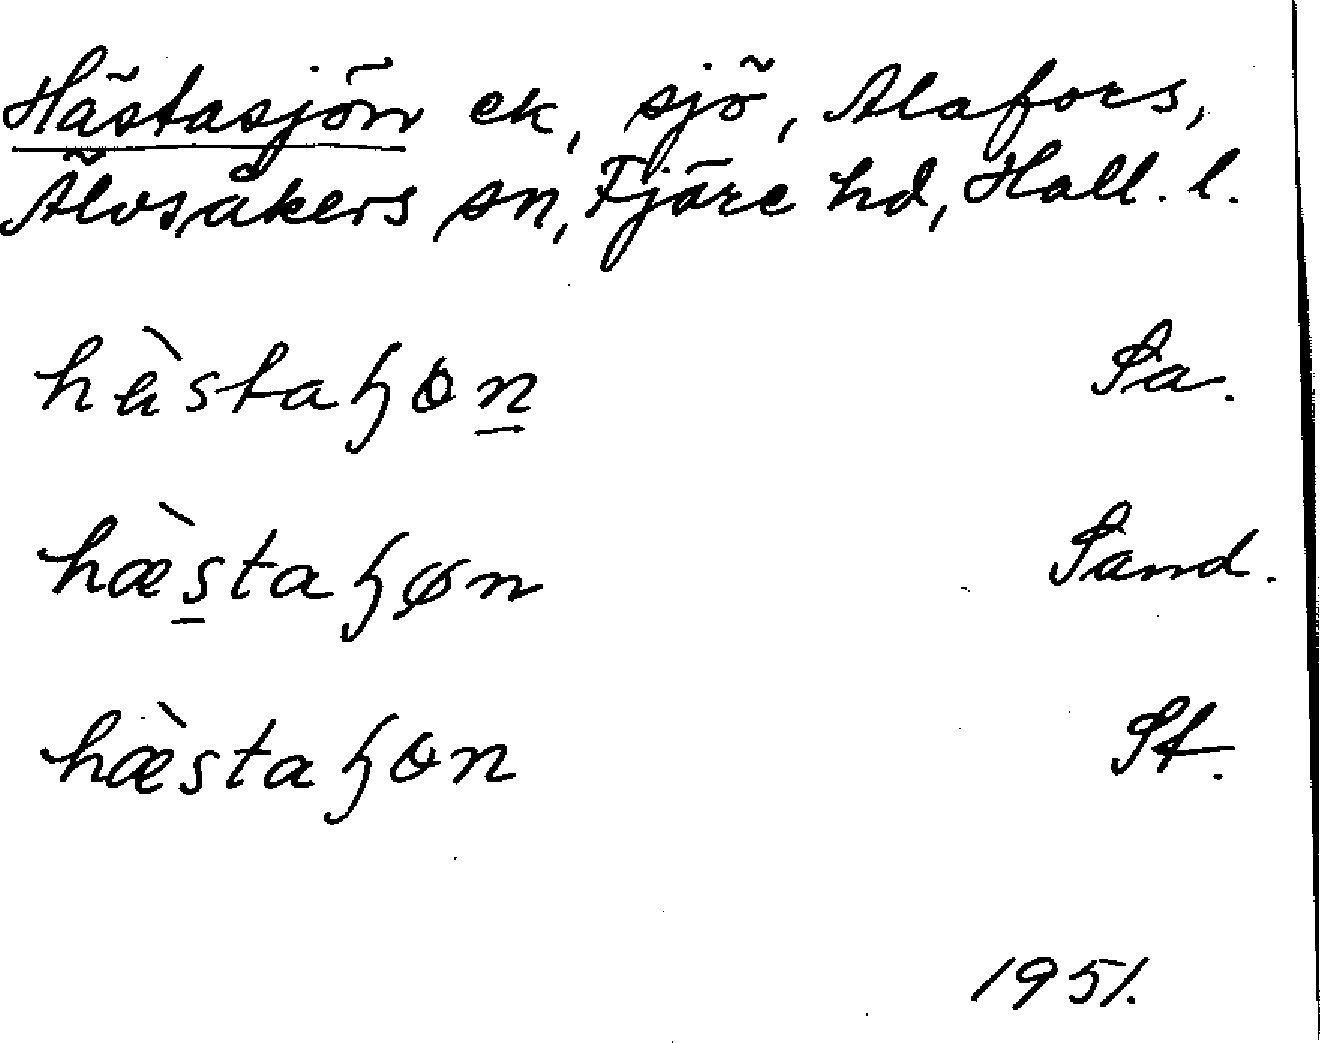 Hästasjön ek, sjö, Alafors,
Älvsåkers sn, Fjäre hd, Hall. l.
hæ̀staɧɵn Sa.
hæ̀staɧøn Sand.
hæ̀staɧɵn St.
1951.